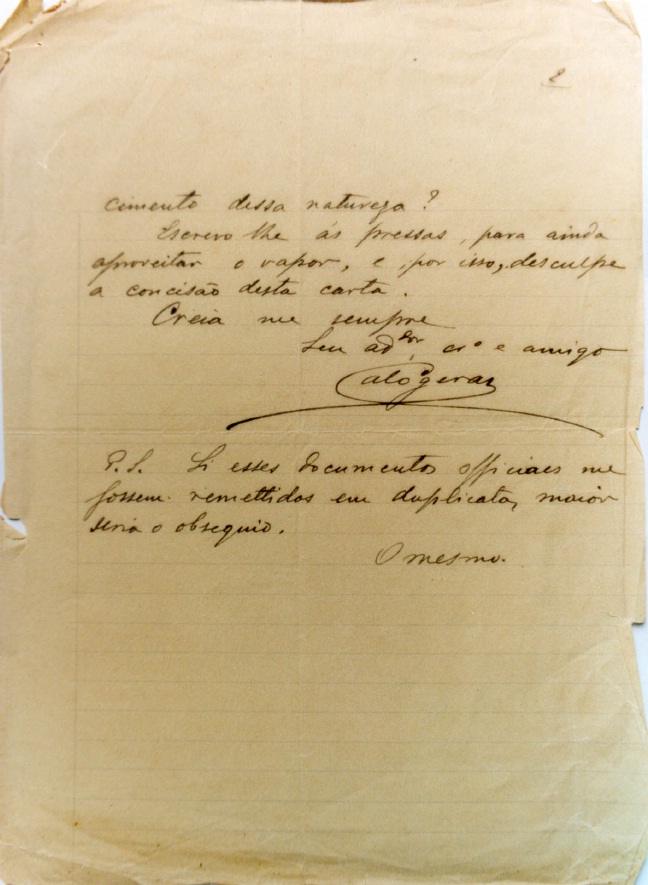 2
cimento dessa natureza?
Escrevo lhe ás pressas, para ainda
aproveitar o vapor, e, por isso, desculpe
a concisão desta carta.
Creia me sempre
Seu ad.dor, cr.o e amigo
Calogeras
P.S. Si esses documentos officiaes me
fossem remettidos em duplicata, maior
seria o obsequio.
O mesmo.